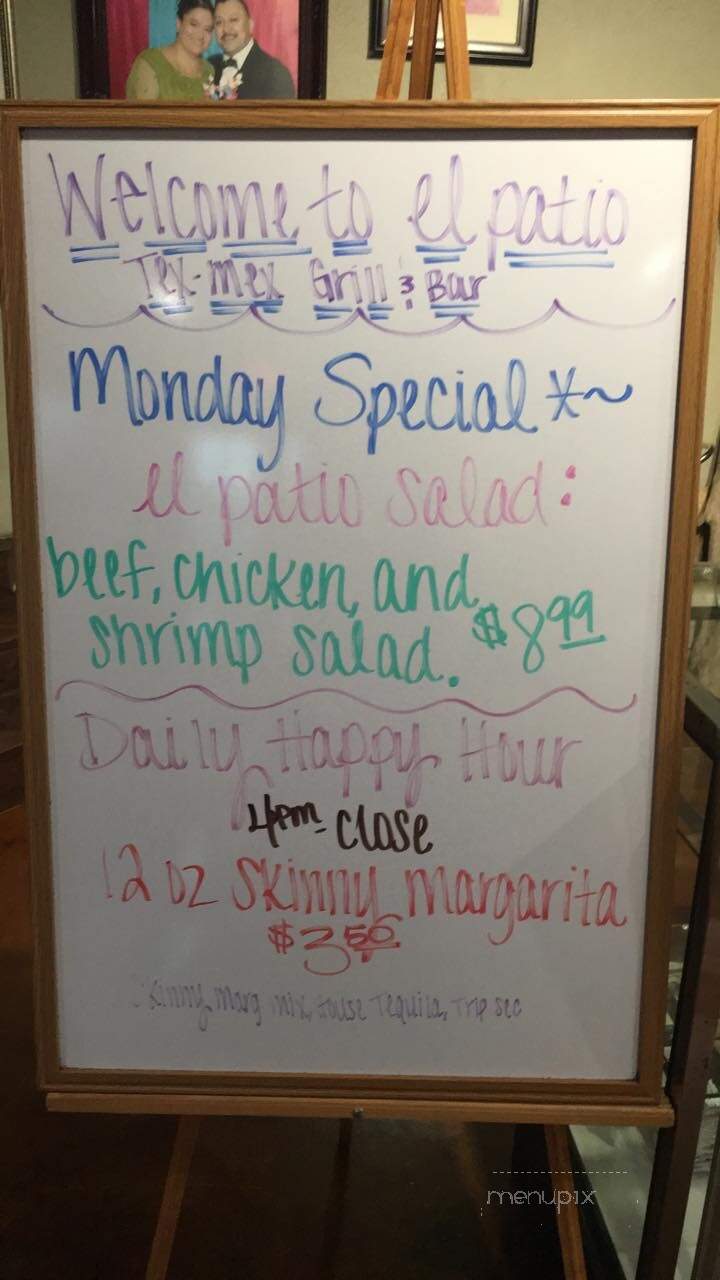 Welcome to el patio
Tex-Mex Grill & Bar
Monday Special *~
el patio salad:
beef, chicken, and
shrimp salad. $8.99
Daily Happy Hour
4pm - close
12 oz skinny margarita
$3.50
skinny marg mix, House Tequila, Trip sec
menupix